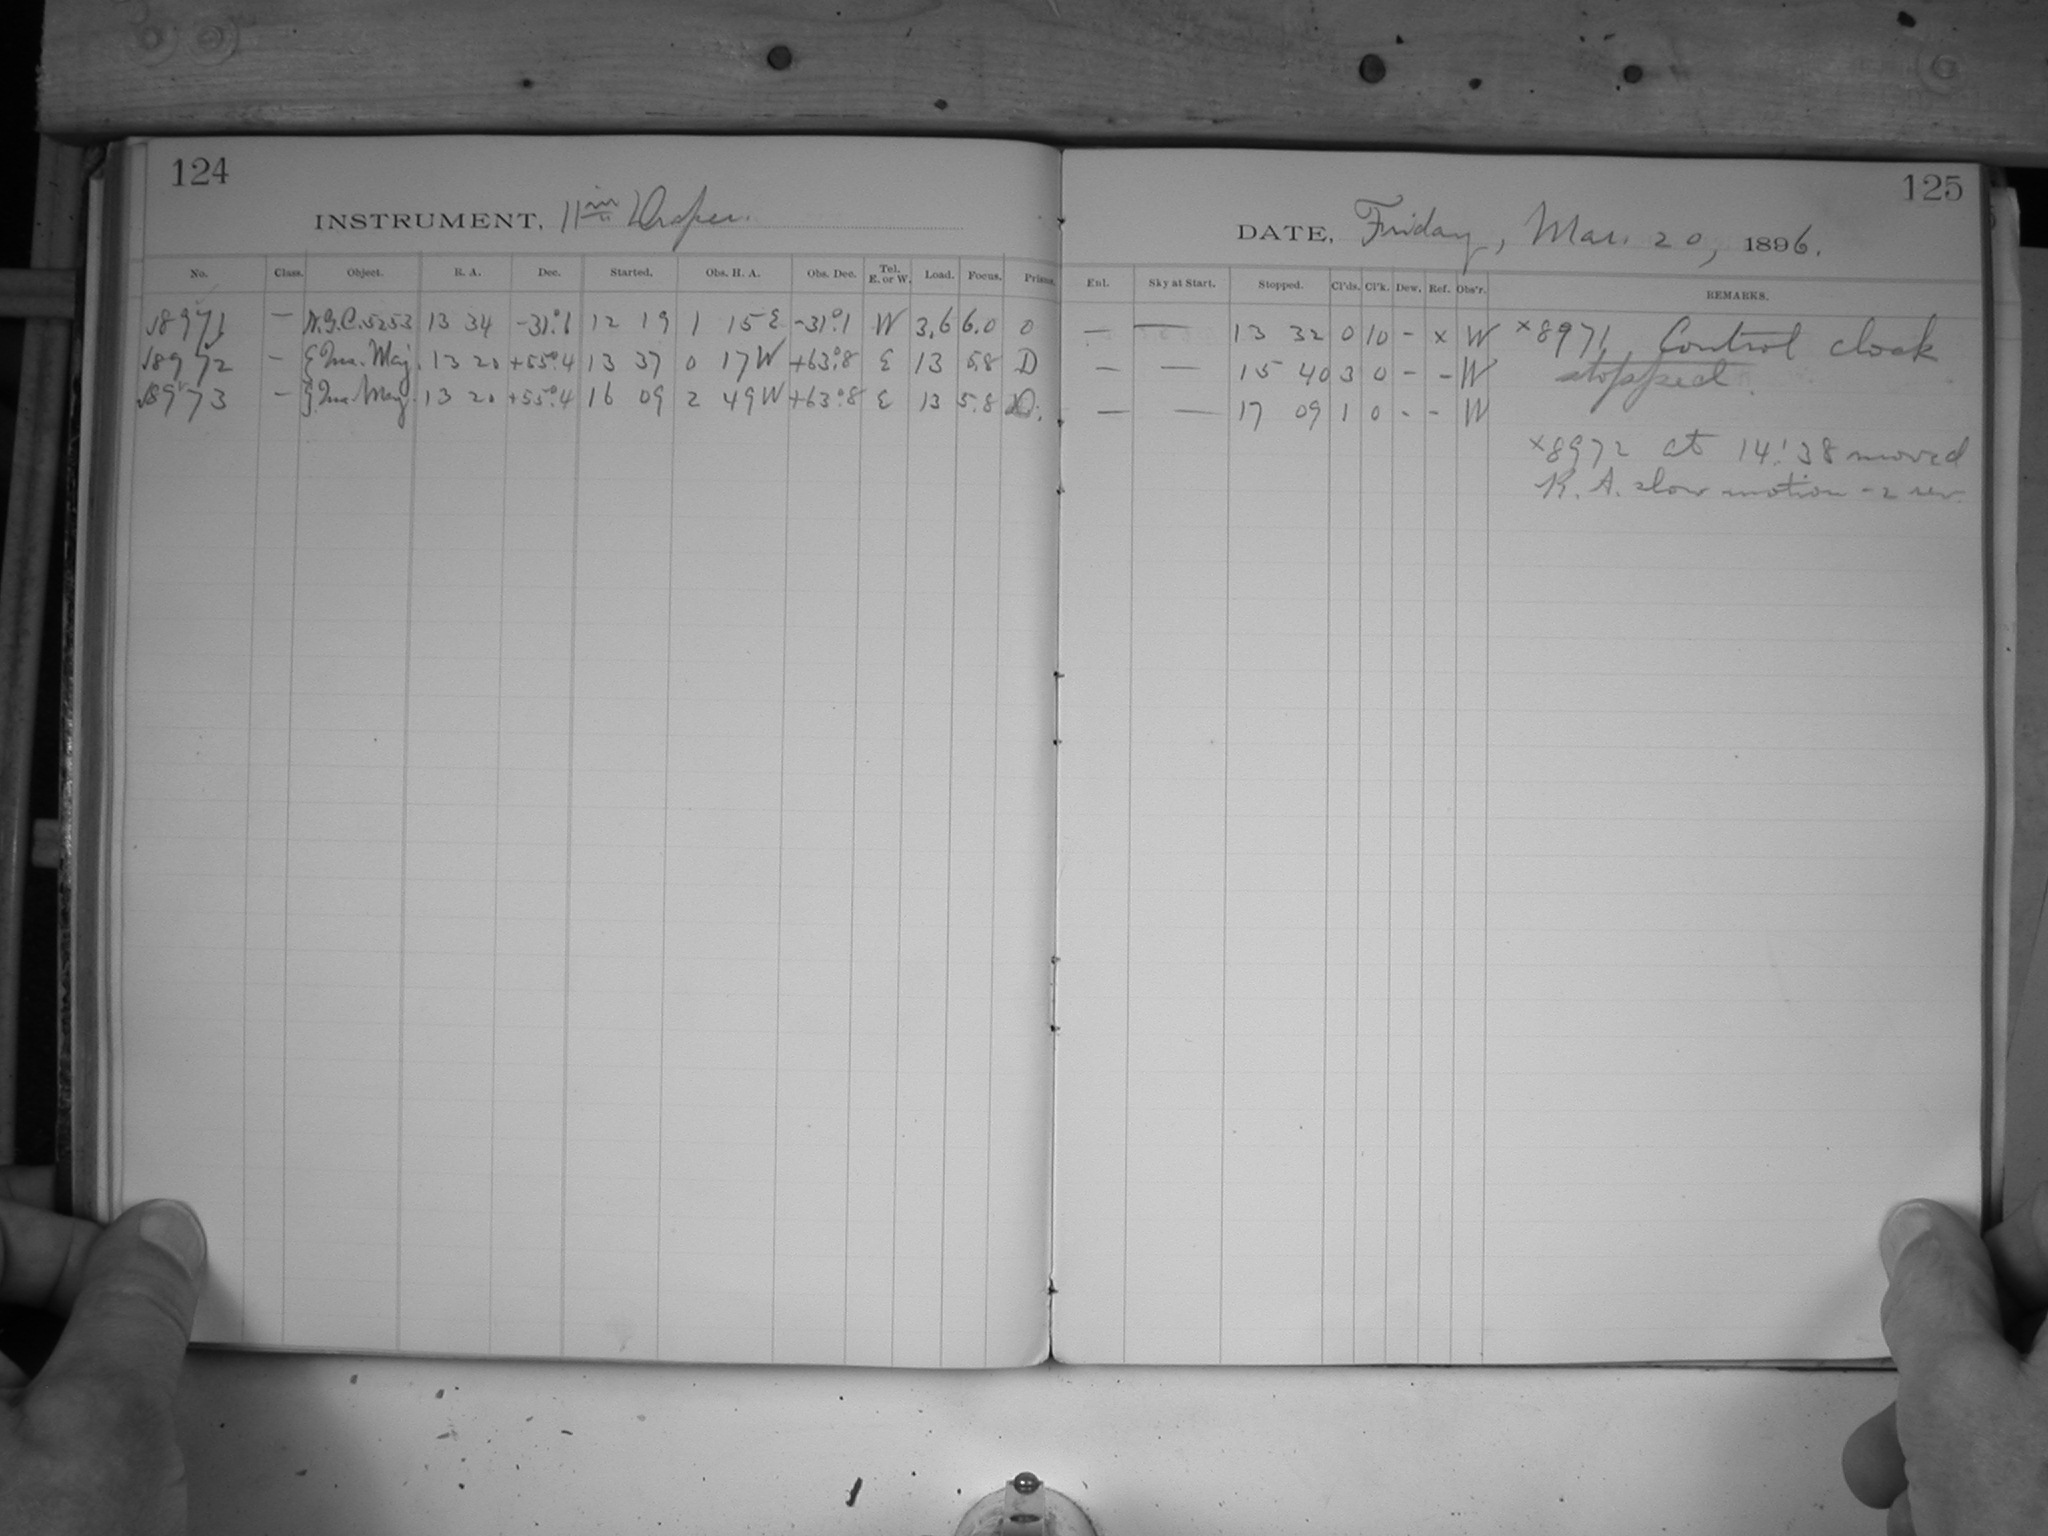 124
INSTRUMENT, 11in Draper.
No. Class. Object. R. A. Dec. Started. Obs. H. A. Obs. Dec. Tel. E. or W. Load. Focus. Prisms.
18971 — N.G.C. 5253 13 34 -31°.1 12 19 1 15 E -31°.1 W 3.6 6.0 0
18972 — ζ Urs. Maj. 13 20 +55°.4 13 37 0 17 W +63°.8 E 13 5.8 D
18973 — ζ Urs. Maj. 13 20 +55°.4 16 09 2 49 W +63°.8 E 13 5.8 D.
125
DATE, Friday, Mar. 20, 1896.
Enl. Sky at Start. Stopped. Cl'ds. Cl'k. Dew. Ref. Obs'r. REMARKS.
— — 13 32 0 10 - x W x8971 Control clock
— — 15 40 3 0 - - W stopped.
— — 17 09 1 0 - - W
x8972 at 14:38 moved
R. A. slow motion - 2 rev.